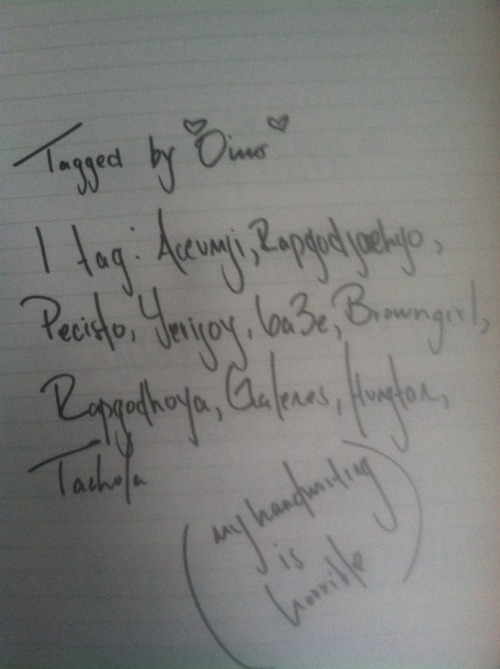 Tagged by ♡Dino♡
I tag: Aceumji, Rapgodjaehyo,
Pecisto, Yerijoy, ba3e, Browngirl,
Rapgodhoya, Galenes,
Tachola
(my handwriting
is
horrible)